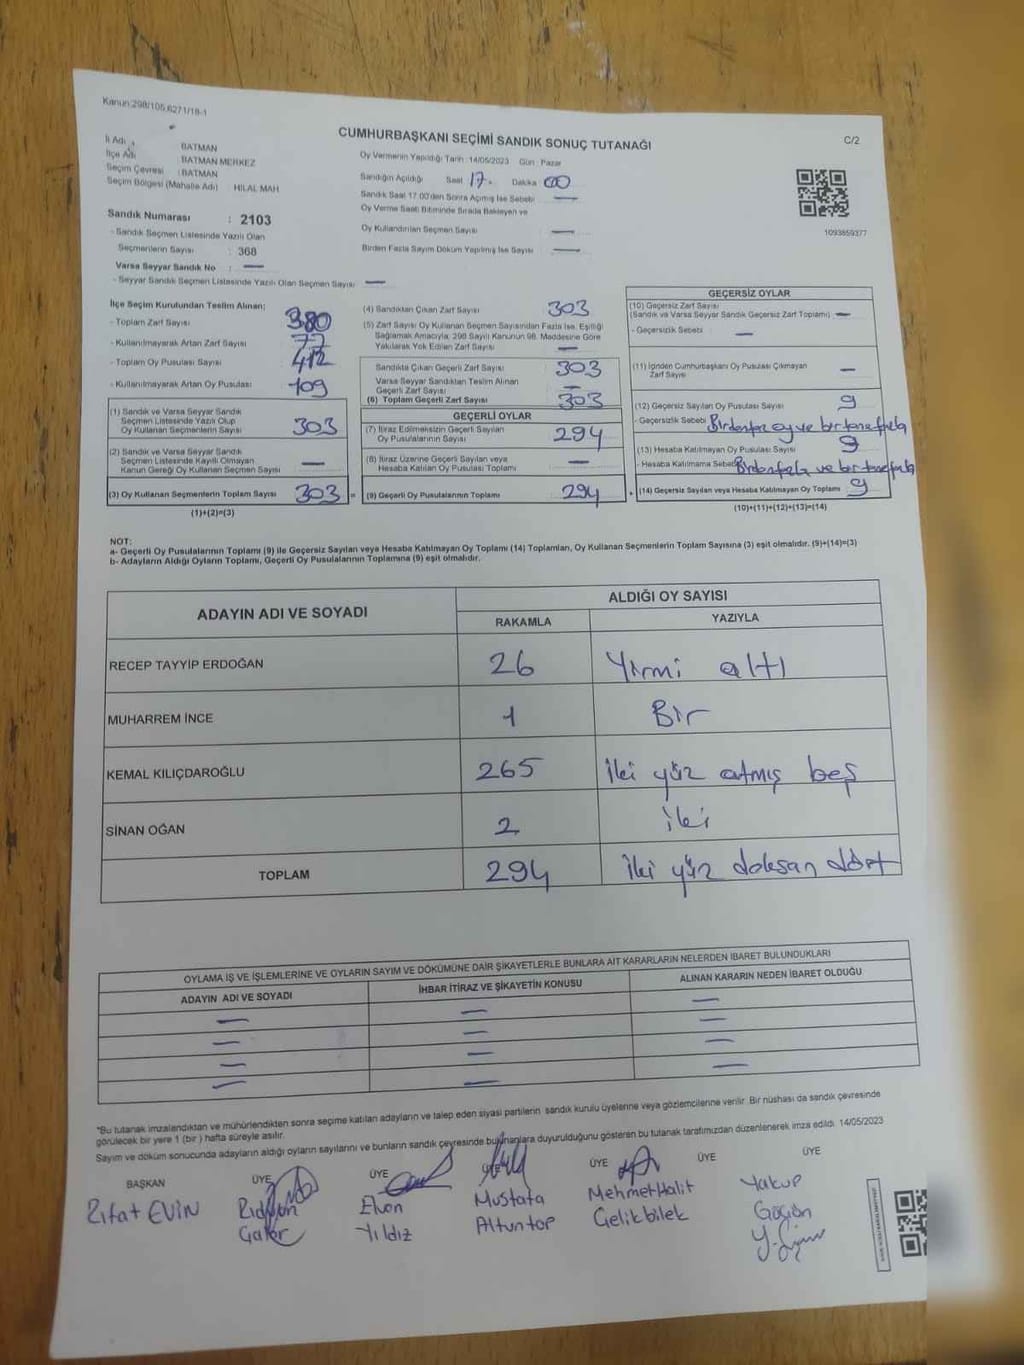 Kanun:298/105,6271/18-1
CUMHURBAŞKANI SEÇİMİ SANDIK SONUÇ TUTANAĞI
C/2
İl Adı : BATMAN
İlçe Adı : BATMAN MERKEZ
Seçim Çevresi : BATMAN
Seçim Bölgesi (Mahalle Adı) HİLAL MAH
Sandık Numarası : 2103
- Sandık Seçmen Listesinde Yazılı Olan
Seçmenlerin Sayısı : 368
Varsa Seyyar Sandık No : —
- Seyyar Sandık Seçmen Listesinde Yazılı Olan Seçmen Sayısı —
Oy Vermenin Yapıldığı Tarih :14/05/2023 Gün : Pazar
Sandığın Açıldığı Saat 17 Dakika 00
Sandık Saat 17.00'den Sonra Açılmış İse Sebebi —
Oy Verme Saati Bitiminde Sırada Bekleyen ve
Oy Kullandırılan Seçmen Sayısı —
Birden Fazla Sayım Döküm Yapılmış İse Sayısı —
1093859377
İlçe Seçim Kurulundan Teslim Alınan;
- Toplam Zarf Sayısı 380
- Kullanılmayarak Artan Zarf Sayısı 77
- Toplam Oy Pusulası Sayısı 412
- Kullanılmayarak Artan Oy Pusulası 109
(1) Sandık ve Varsa Seyyar Sandık
Seçmen Listesinde Yazılı Olup
Oy Kullanan Seçmenlerin Sayısı 303
(2) Sandık ve Varsa Seyyar Sandık
Seçmen Listesinde Kayıtlı Olmayan
Kanun Gereği Oy Kullanan Seçmen Sayısı —
(3) Oy Kullanan Seçmenlerin Toplam Sayısı 303 =
(1)+(2)=(3)
(4) Sandıktan Çıkan Zarf Sayısı 303
(5) Zarf Sayısı Oy Kullanan Seçmen Sayısından Fazla İse, Eşitliği
Sağlamak Amacıyla, 298 Sayılı Kanunun 98. Maddesine Göre
Yakılarak Yok Edilen Zarf Sayısı —
Sandıkta Çıkan Geçerli Zarf Sayısı 303
Varsa Seyyar Sandıktan Teslim Alınan
Geçerli Zarf Sayısı —
(6) Toplam Geçerli Zarf Sayısı 303
GEÇERLİ OYLAR
(7) İtiraz Edilmeksizin Geçerli Sayılan
Oy Pusulalarının Sayısı 294
(8) İtiraz Üzerine Geçerli Sayılan veya
Hesaba Katılan Oy Pusulası Toplamı —
(9) Geçerli Oy Pusulalarının Toplamı 294 +
GEÇERSİZ OYLAR
(10) Geçersiz Zarf Sayısı
(Sandık ve Varsa Seyyar Sandık Geçersiz Zarf Toplamı) —
- Geçersizlik Sebebi —
(11) İçinden Cumhurbaşkanı Oy Pusulası Çıkmayan
Zarf Sayısı —
(12) Geçersiz Sayılan Oy Pusulası Sayısı 9
- Geçersizlik Sebebi oy ve bir tane fazla
(13) Hesaba Katılmayan Oy Pusulası Sayısı 9
- Hesaba Katılmama Sebebi ve bir tane fazla
(14) Geçersiz Sayılan veya Hesaba Katılmayan Oy Toplamı 9
(10)+(11)+(12)+(13)=(14)
NOT:
a- Geçerli Oy Pusulalarının Toplamı (9) ile Geçersiz Sayılan veya Hesaba Katılmayan Oy Toplamı (14) Toplamları, Oy Kullanan Seçmenlerin Toplam Sayısına (3) eşit olmalıdır. (9)+(14)=(3)
b- Adayların Aldığı Oyların Toplamı, Geçerli Oy Pusulalarının Toplamına (9) eşit olmalıdır.
ADAYIN ADI VE SOYADI
ALDIĞI OY SAYISI
RAKAMLA YAZIYLA
RECEP TAYYİP ERDOĞAN 26 Yirmi altı
MUHARREM İNCE 1 Bir
KEMAL KILIÇDAROĞLU 265 İki yüz atmış beş
SİNAN OĞAN 2 iki
TOPLAM 294 İki yüz doksan dört
OYLAMA İŞ VE İŞLEMLERİNE VE OYLARIN SAYIM VE DÖKÜMÜNE DAİR ŞİKAYETLERLE BUNLARA AİT KARARLARIN NELERDEN İBARET BULUNDUKLARI
ADAYIN ADI VE SOYADI İHBAR İTİRAZ VE ŞİKAYETİN KONUSU ALINAN KARARIN NEDEN İBARET OLDUĞU
— — —
— — —
— — —
— — —
*Bu tutanak imzalandıktan ve mühürlendikten sonra seçime katılan adayların ve talep eden siyasi partilerin sandık kurulu üyelerine veya gözlemcilerine verilir. Bir nüshası da sandık çevresinde
görülecek bir yere 1 (bir) hafta süreyle asılır.
Sayım ve döküm sonucunda adayların aldığı oyların sayılarını ve bunların sandık çevresinde bulunanlara duyurulduğunu gösteren bu tutanak tarafımızdan düzenlenerek imza edildi. 14/05/2023
BAŞKAN ÜYE ÜYE ÜYE ÜYE ÜYE ÜYE
Rıfat EVİN Mustafa Mehmet Halit Yakup
Yıldız Altuntop Gelikbilek